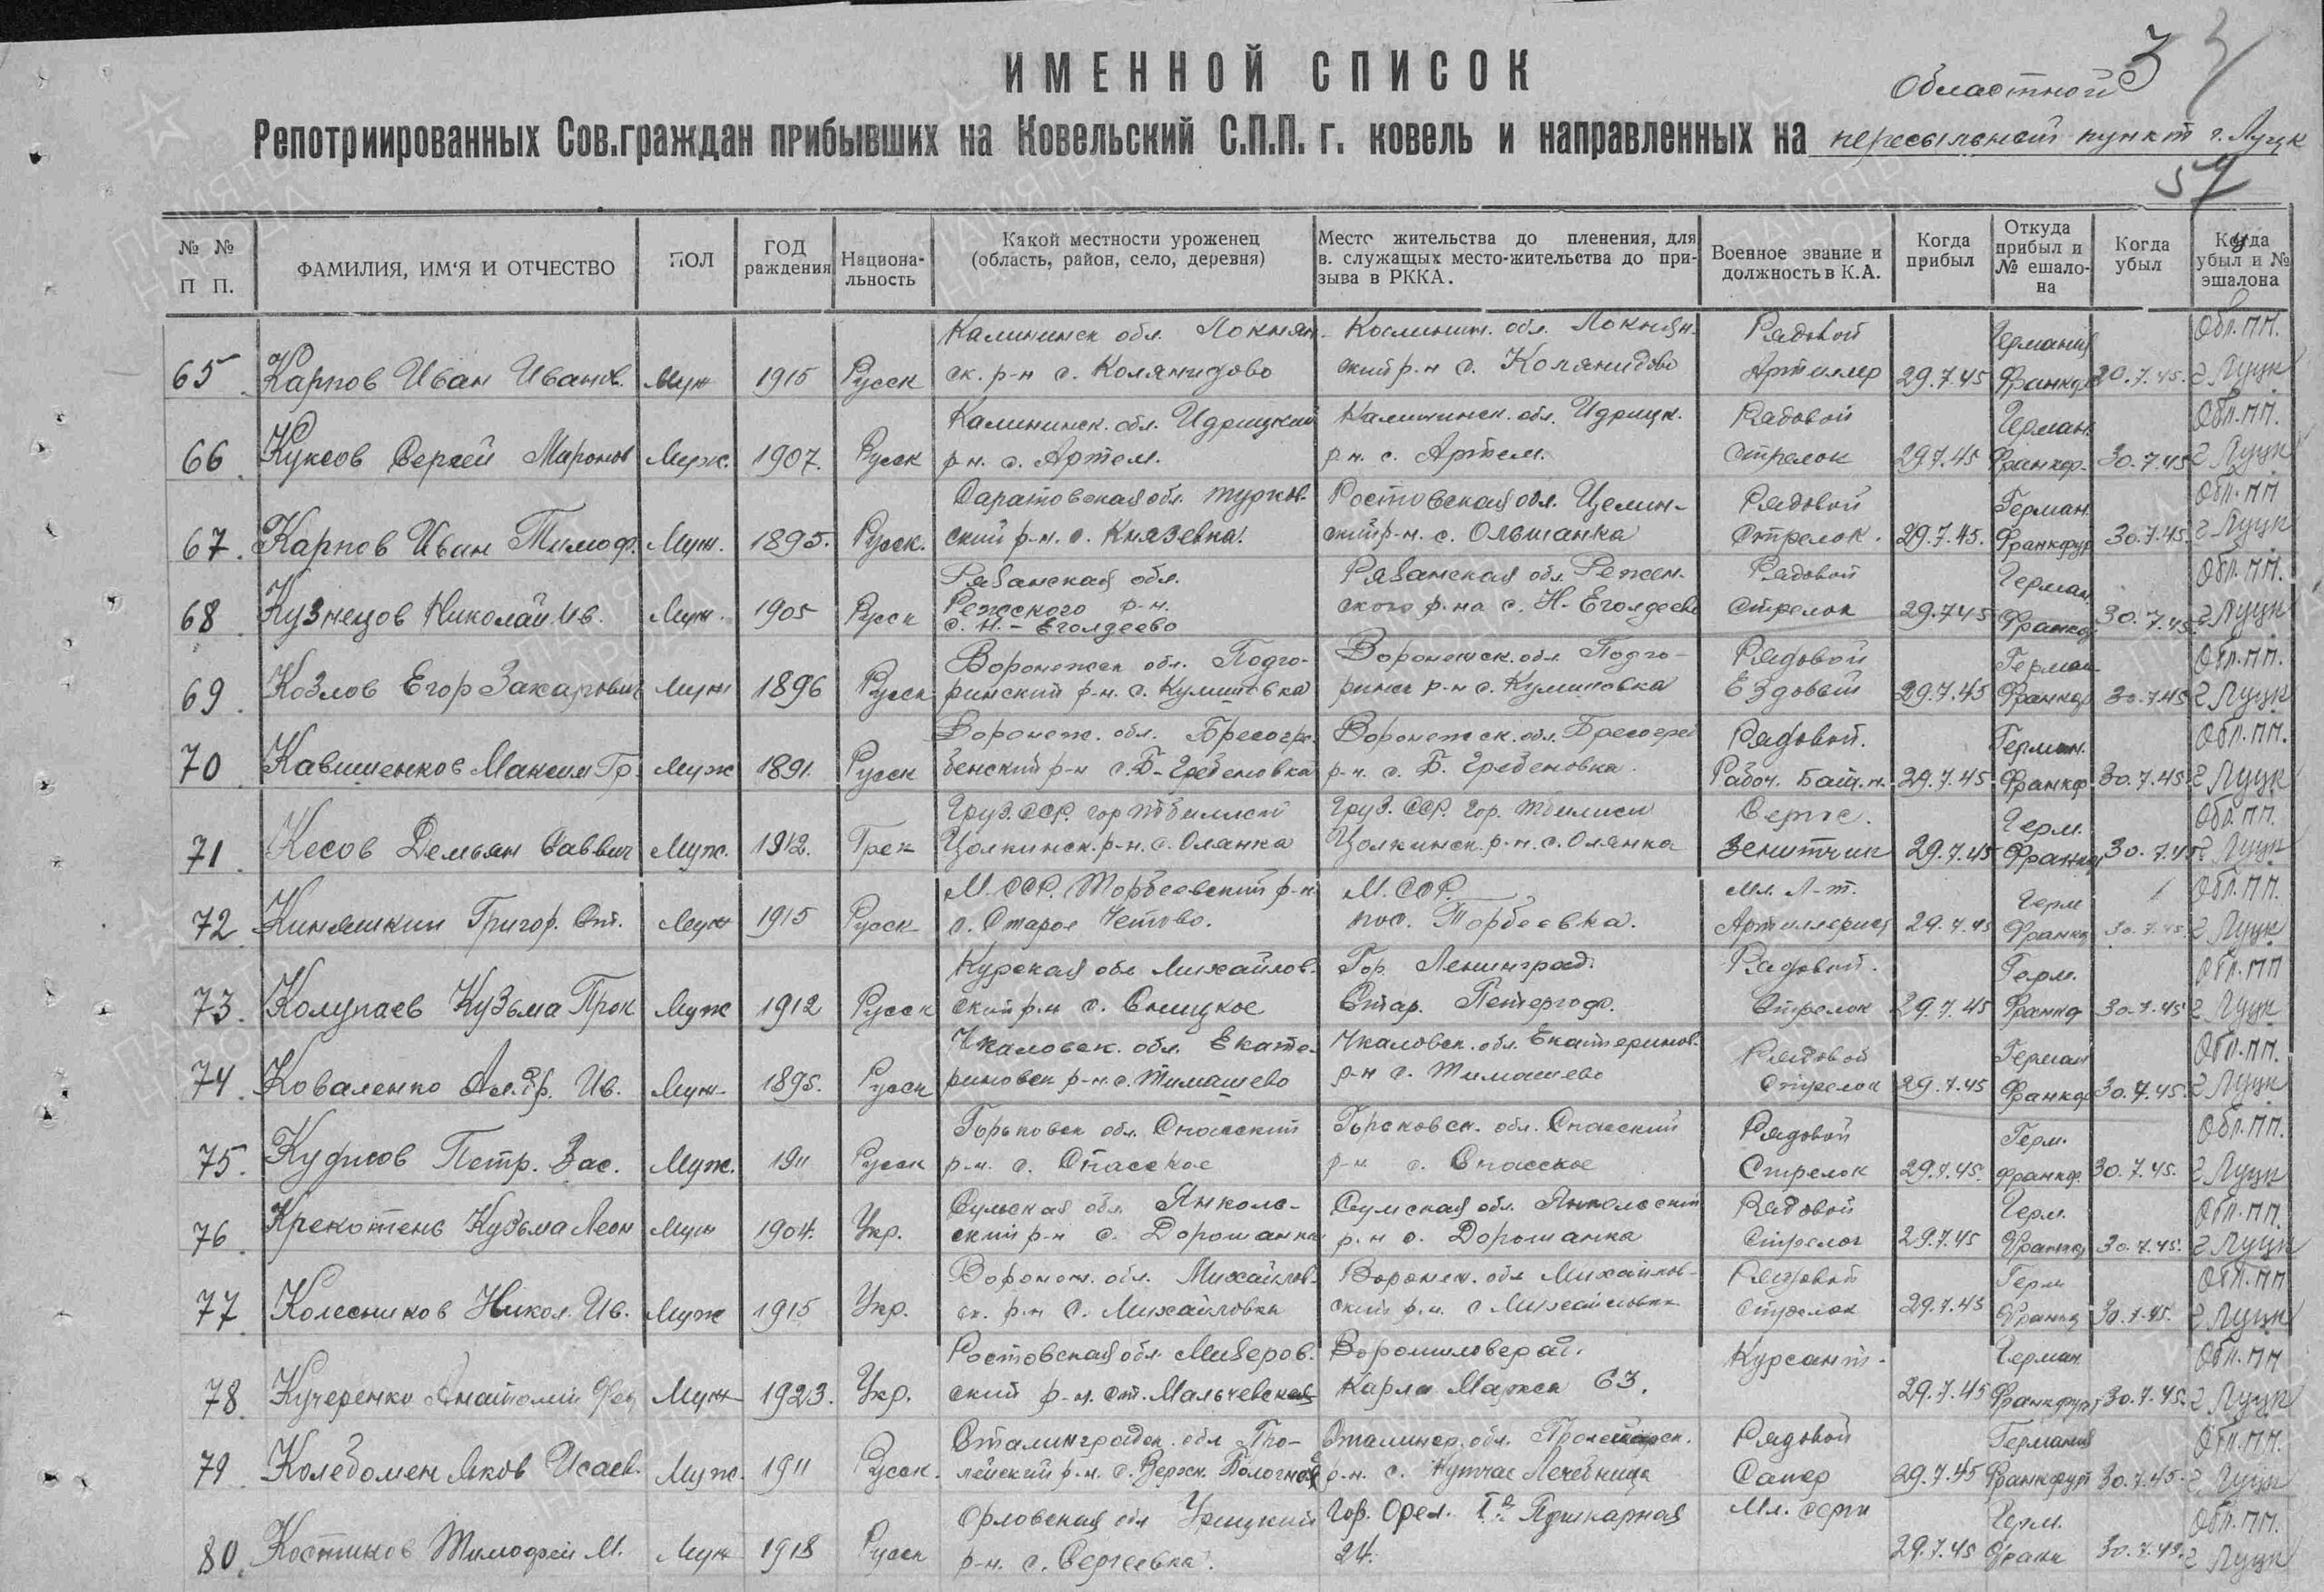 ИМЕННОЙ СПИСОК
Областной 3
Репотриированных Сов.граждан прибывших на Ковельский С.П.П. г. ковель и направленных на пересыльный пункт г. Луцк
№ № П П. ФАМИЛИЯ, ИМ'Я И ОТЧЕСТВО ПОЛ ГОД раждения Национа-льность Какой местности уроженец (область, район, село, деревня) Место жительства до пленения, для в. служащих место-жительства до при-зыва в РККА. Военное звание и должность в К.А. Когда прибыл Откуда прибыл и № ешало-на Когда убыл Когда убыл и № эшалона
Калининск обл. Локнян- Калинин. обл. Локнян- Рядовой Германия Обл.пп.
65 Карпов Иван Иванов. Муж 1915 Русск ск. р-н с. Колянидово ский р-н с. Колянидово Артиллер 29.7.45 Франкф 30.7.45. г Луцк
Калининск. обл. Идрицкий Калининск. обл. Идрицк. Рядовой Герман. Обл.пп.
66. Куксов Сергей Миронов Муж. 1907. Русск р-н. с. Артем. р-н. с. Артем. Стрелок 29.7.45 Франкф. 30.7.45 г Луцк
Саратовская обл. турков- Ростовская обл. Целин- Рядовой Герман. Обл.пп
67. Карпов Иван Тимоф. Муж. 1895. Русск. ский р-н. с. Князевка. ский р-н. с. Ольшанка Стрелок. 29.7.45. Франкфур 30.7.45. г Луцк
Рязанская обл. Рязанская обл. Ряжен- Рядовой Герман. Обл.пп.
68. Кузнецов Николай Ив. Муж. 1905 Русск Ряжского р-н. с. Н.-Еголдеево ского р-на с. Н-Еголдеево Стрелок 29.745 Франкф 30.7.45. г Луцк
Воронежск обл. Подго- Воронежск. обл. Подго- Рядовой Герман Обл.пп.
69. Козлов Егор Захарович Муж 1896 Русск ринский р-н. с. Кулишовка ринск р-н с. Кулишовка Ездовый 29.7.45 Франкф 30.7.45 г Луцк
Воронеж. обл. Воронежск. обл. Рядовой. Герман. Обл.пп.
70 Кавшиенков Максим Гр. Муж 1891. Русск бенский р-н с. Б-Гребеновка р-н. с. Б. Гребеновка. Рабоч. 29.7.45. Франкф. 30.7.45. г Луцк
Груз. ССР. гор Тбилиси Груз. ССР. Гор. Тбилиси Серж. Герм. Обл.пп.
71. Кесов Демьян Саввич Муж. 1912. Грек Цолкинск. р-н. с. Оланка Цолкинск. р-н. с. Олянка Зенитчик 29.7.45 Франкф 30.7.45 г Луцк
М. ССР. Торбеевский р-н М. ССР. Мл. Л-т. Герм Обл.пп.
72. Киняшкин Григор. Ст. Муж 1915 Русск с. Старое Четово. пос. Торбеевка. Артиллерист 29.7.45 Франкф 30.7.45. г Луцк
Курская обл Михайлов- Гор. Ленинград. Рядовой. Герм. Обл.пп
73. Колупаев Кузьма Прок Муж 1912 Русск ский р-н с. Стар. Петергоф. Стрелок 29.7.45 Франкф 30.7.45 г Луцк
Чкаловск. обл. Екате- Чкаловск. обл. Екатеринов- Рядовой Герман Обл.пп.
74. Коваленко Ал.др. Ив. Муж 1895. Русск риновск р-н. с. Тимашево р-н с. Тимашево Стрелок 29.7.45 Франкф 30.7.45. г Луцк
Горьковск обл. Спасский Горьковск. обл. Спасский Рядовой Герм. Обл.пп.
75. Петр. Вас. Муж. 1911 Русск р-н. с. Спасское р-н с. Спасское Стрелок 29.7.45. Франкф. 30.7.45. г Луцк
Сумская обл. Ямполь- Сумская обл. Ямпольский Рядовой Герм. Обл.пп.
76. Крекотень Кузьма Леон Муж 1904. Укр. ский р-н с. Дорошанка р-н с. Дорошанка Стрелок 29.7.45 Франкф 30.7.45. г Луцк
Воронеж. обл. Михайлов- Воронеж. обл Михайлов- Рядовой Герм Обл.пп
77. Колесников Никол. Ив. Муж 1915 Укр. ск. р-н с. Михайловка ский р-н. с Михайловка Стрелок 29.7.45 Франкф 30.7.45. г Луцк
Ростовская обл. Миллеров- Ворошиловград. Курсант. Герман Обл.пп
78. Кучеренко Анатолий Фед Муж 1923. Укр. ский р-н. ст. Мальчевская Карла Маркса 63. 29.7.45 Франкфурт 30.7.45. г Луцк
Сталинградск. обл Сталингр. обл. Рядовой Германия Обл.пп.
79 Яков Исаев. Муж. 1911 Русск. р-н. с. Верхн. р-н. с. Лечебница Сапер 29.7.45 Франкфурт 30.7.45. г. Луцк
Орловская обл Урицкий Гор. Орел. 1я Пушкарная Мл. серж Герм. Обл.пп.
80. Костиков Тимофей М. Муж 1918 Русск р-н. с. Сергеевка. 24. 29.7.45 Франк 30.7.45. г Луцк